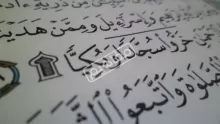 من ذرية
وإسرءيل وممن هدين
خروا سجدا وبكيا ۩
الصلوة واتبعوا الش